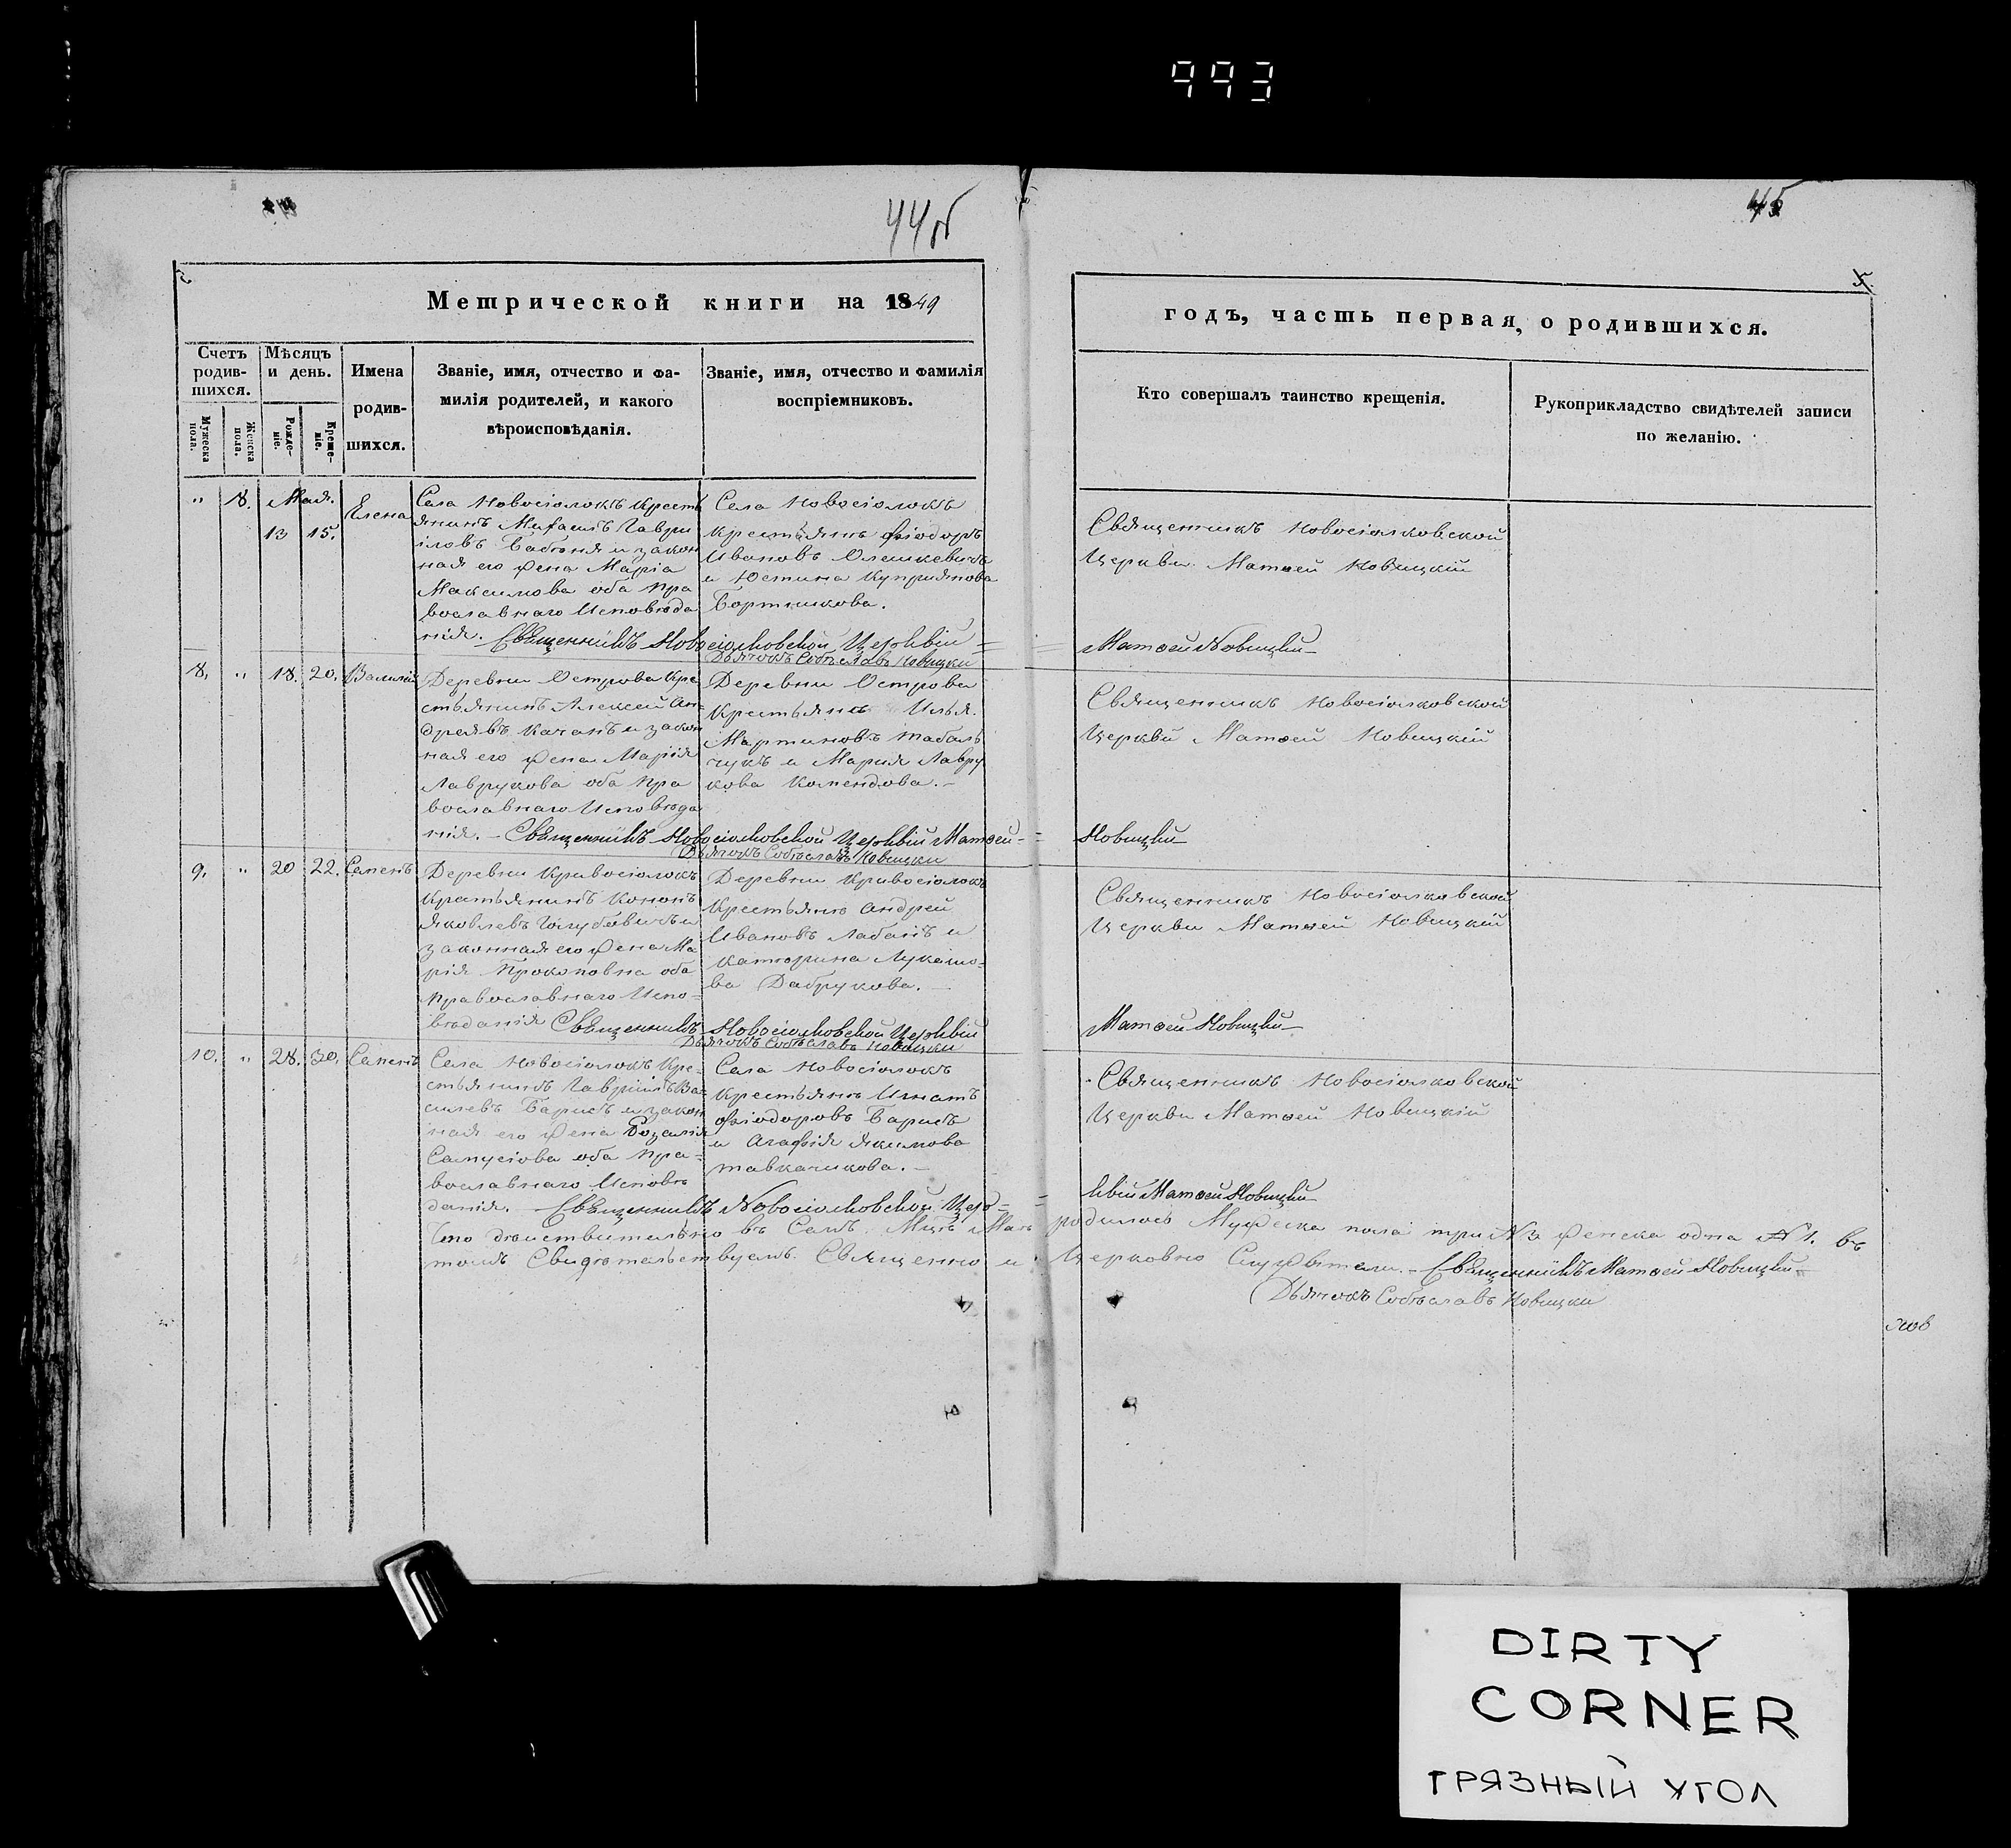 993
44об
45
Метрической книги на 1849
годъ, часть первая, о родившихся.
Счетъ родив-шихся.
Мужеска пола.
Женска пола.
Мѣсяцъ и день.
Рожде-ніе.
Креще-ніе.
Имена родив-шихся.
Званіе, имя, отчество и фа-
милія родителей, и какого
вѣроисповѣданія.
Званіе, имя, отчество и фамилія
воспріемниковъ.
Кто совершалъ таинство крещенія.
Рукоприкладство свидѣтелей записи
по желанію.
" 8. Мая. 13 15. Елена
Села Новосіолокъ Кресть
янинъ Михаилъ Гаври
іловъ и закон
ная его жена Марія
Максимова оба пра
вославнаго Исповѣда
нія. Священникъ Новосіолковской Церквій
Села Новосіолокъ
крестьянъ Фіодоръ
Ивановъ Олешкевичь
и Юстина Куприянова
Бортникова.
Дьячокъ Собѣславъ Новицки
Священникъ Новосіолковской
Церкви Матѳей Новицкій
Матѳей Новицкій
8. " 18. 20. Василій
Деревни Острова Кре
стьянинъ Алексей Ан-
дреявъ Качанъ и закон
ная его жена Марія
Лаврукова оба пра
вославнаго Исповѣда
нія. - Священникъ Новосіолковской Церквій Матѳей
Деревни Острова
Крестьянъ Илья
Мартиновъ Табаль
чукъ и Мария Лавру
кова Комендова. -
Дьячокъ Собѣславъ Новицки
Священникъ Новосіолковской
Церкви Матѳей Новицкій
Новицкій
9. " 20 22. Семенъ
Деревни Кривосіолокъ
Крестьянинъ Кононъ
Яковлевъ Голубовичъ и
законная его жена Ма
рія Прокоповна оба
православнаго Испо-
вѣданія Священникъ Новосіолковской Церквій
Деревни Кривосіолокъ
Крестьянъ Андрей
Ивановъ Лабанъ и
Катюрина Лукашо-
ва Дабрукова. -
Дьячокъ Собѣславъ Новицки
Священникъ Новосіолковской
Церкви Матѳей Новицкій
Матѳей Новицкій
10. " 28. 30. Семенъ
Села Новосіолокъ Кре-
стьянинъ Гавріилъ Ва-
силевъ Барисъ и закон
ная его жена Розалія
Самусіова оба пра-
вославнаго Исповѣ
данія. Священникъ Новосіолковской Цер-
Села Новосіолокъ
Крестьянъ Игнатъ
Фіодоровъ Барисъ
и Агафія Якимова
Тавкачикова. -
Священникъ Новосіолковской
Церкви Матѳей Новицкій
квій Матѳей Новицкій
Что дѣиствительно въ Семъ Мцѣ Маѣ родилось Мужеска пола три № 3 женска одна № 1. въ
томъ Свидѣтельствуемъ. Священно и Церковно Служители. - Священникъ Матѳей Новицкій
Дьячокъ Собѣславъ Новицки
DIRTY
CORNER
ГРЯЗНЫЙ УГОЛ